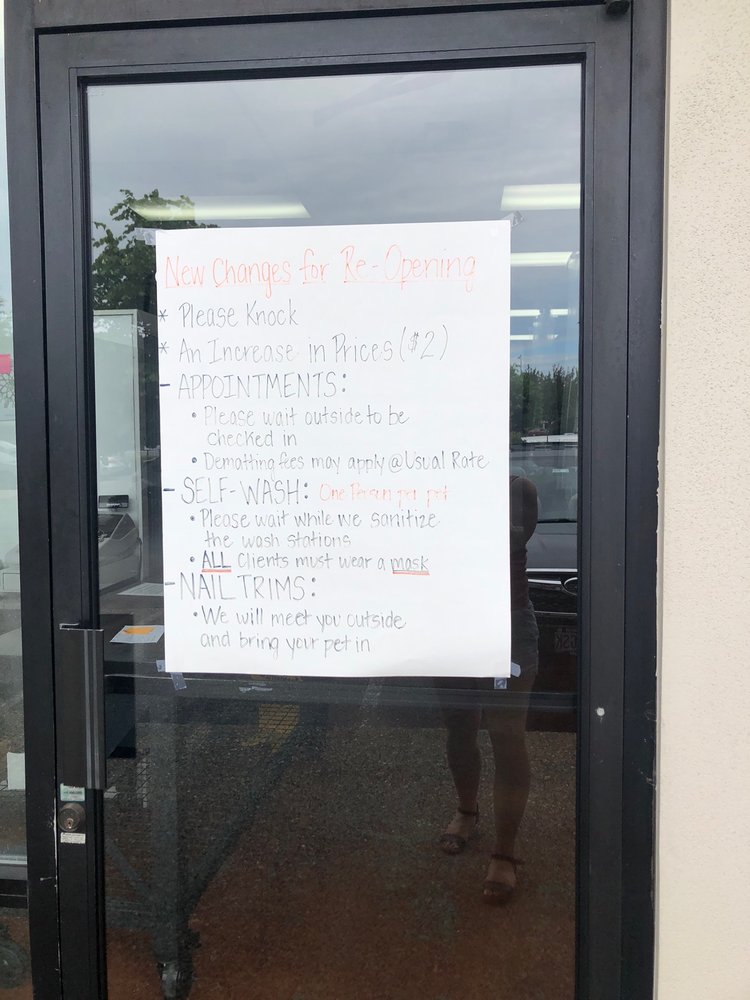 New Changes for Re-Opening
* Please Knock
* An Increase in Prices ($2)
- APPOINTMENTS:
• Please wait outside to be
checked in
• Dematting fees may apply @ Usual Rate
- SELF-WASH: One Person per pet
• Please wait while we sanitize
the wash stations
• ALL Clients must wear a mask
- NAIL TRIMS:
• We will meet you outside
and bring your pet in